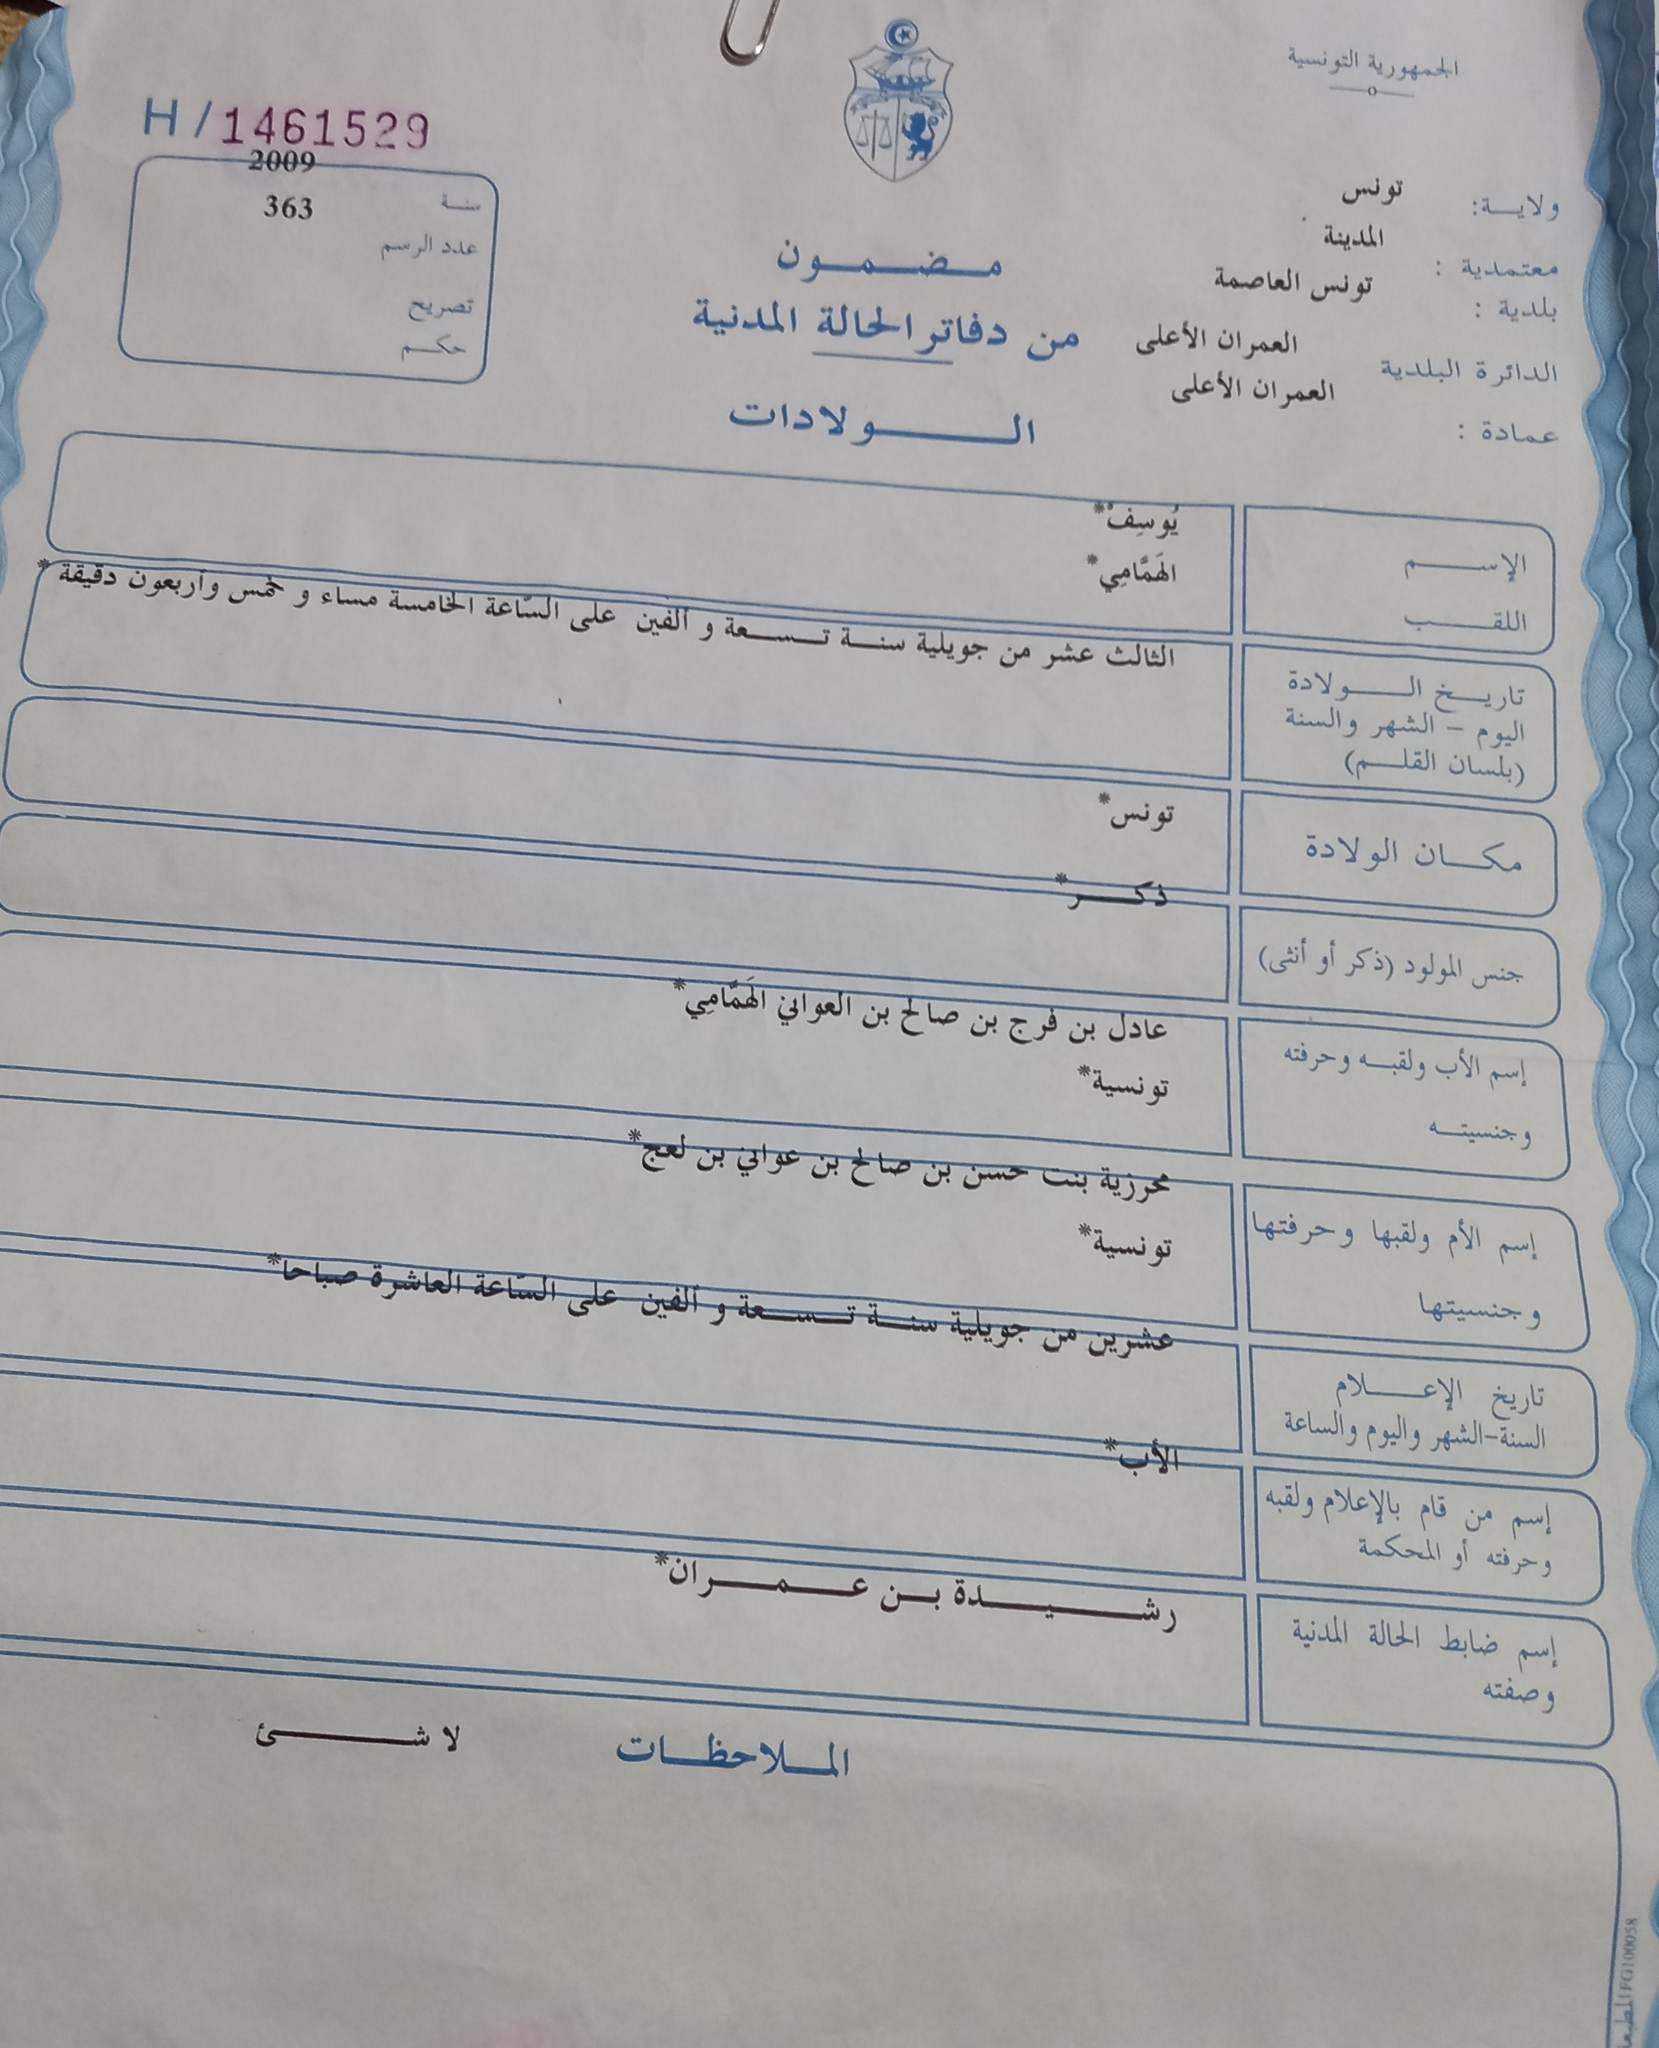 الجمهورية التونسية
H / 1461529
ولايـــة: تونس
معتمدية : المدينة
بلدية : تونس العاصمة
الدائرة البلدية العمران الأعلى
عمادة : العمران الأعلى
سنـة 2009
عدد الرسم 363
تصريح
حكــم
مـضـمـون
من دفاتر الحالة المدنية
الـــولادات
الإســـم يُوسِفْ*
اللقـــب الهَمَّامِي*
تاريــخ الــولادة الثالث عشر من جويلية سنة تسعة و ألفين على السّاعة الخامسة مساء و خمس وأربعون دقيقة *
اليوم - الشهر والسنة
(بلسان القلــم)
مكــان الولادة تونس*
جنس المولود (ذكر أو أنثى) ذكــر*
إسم الأب ولقبــه وحرفته عادل بن فرج بن صالح بن العواني الهَمَّامِي*
وجنسيتــه تونسية*
إسم الأم ولقبها وحرفتها محرزية بنت حسن بن صالح بن عواني بن لعج*
وجنسيتها تونسية*
تاريخ الإعـــلام عشرين من جويلية سنة تسعة و ألفين على السّاعة العاشرة صباحا*
السنة-الشهر واليوم والساعة
إسم من قام بالإعلام ولقبه الأب*
وحرفته أو المحكمة
إسم ضابط الحالة المدنية رشـيـدة بـن عـمـران*
وصفته
المـلاحظـات لا شـــئ
FG100058